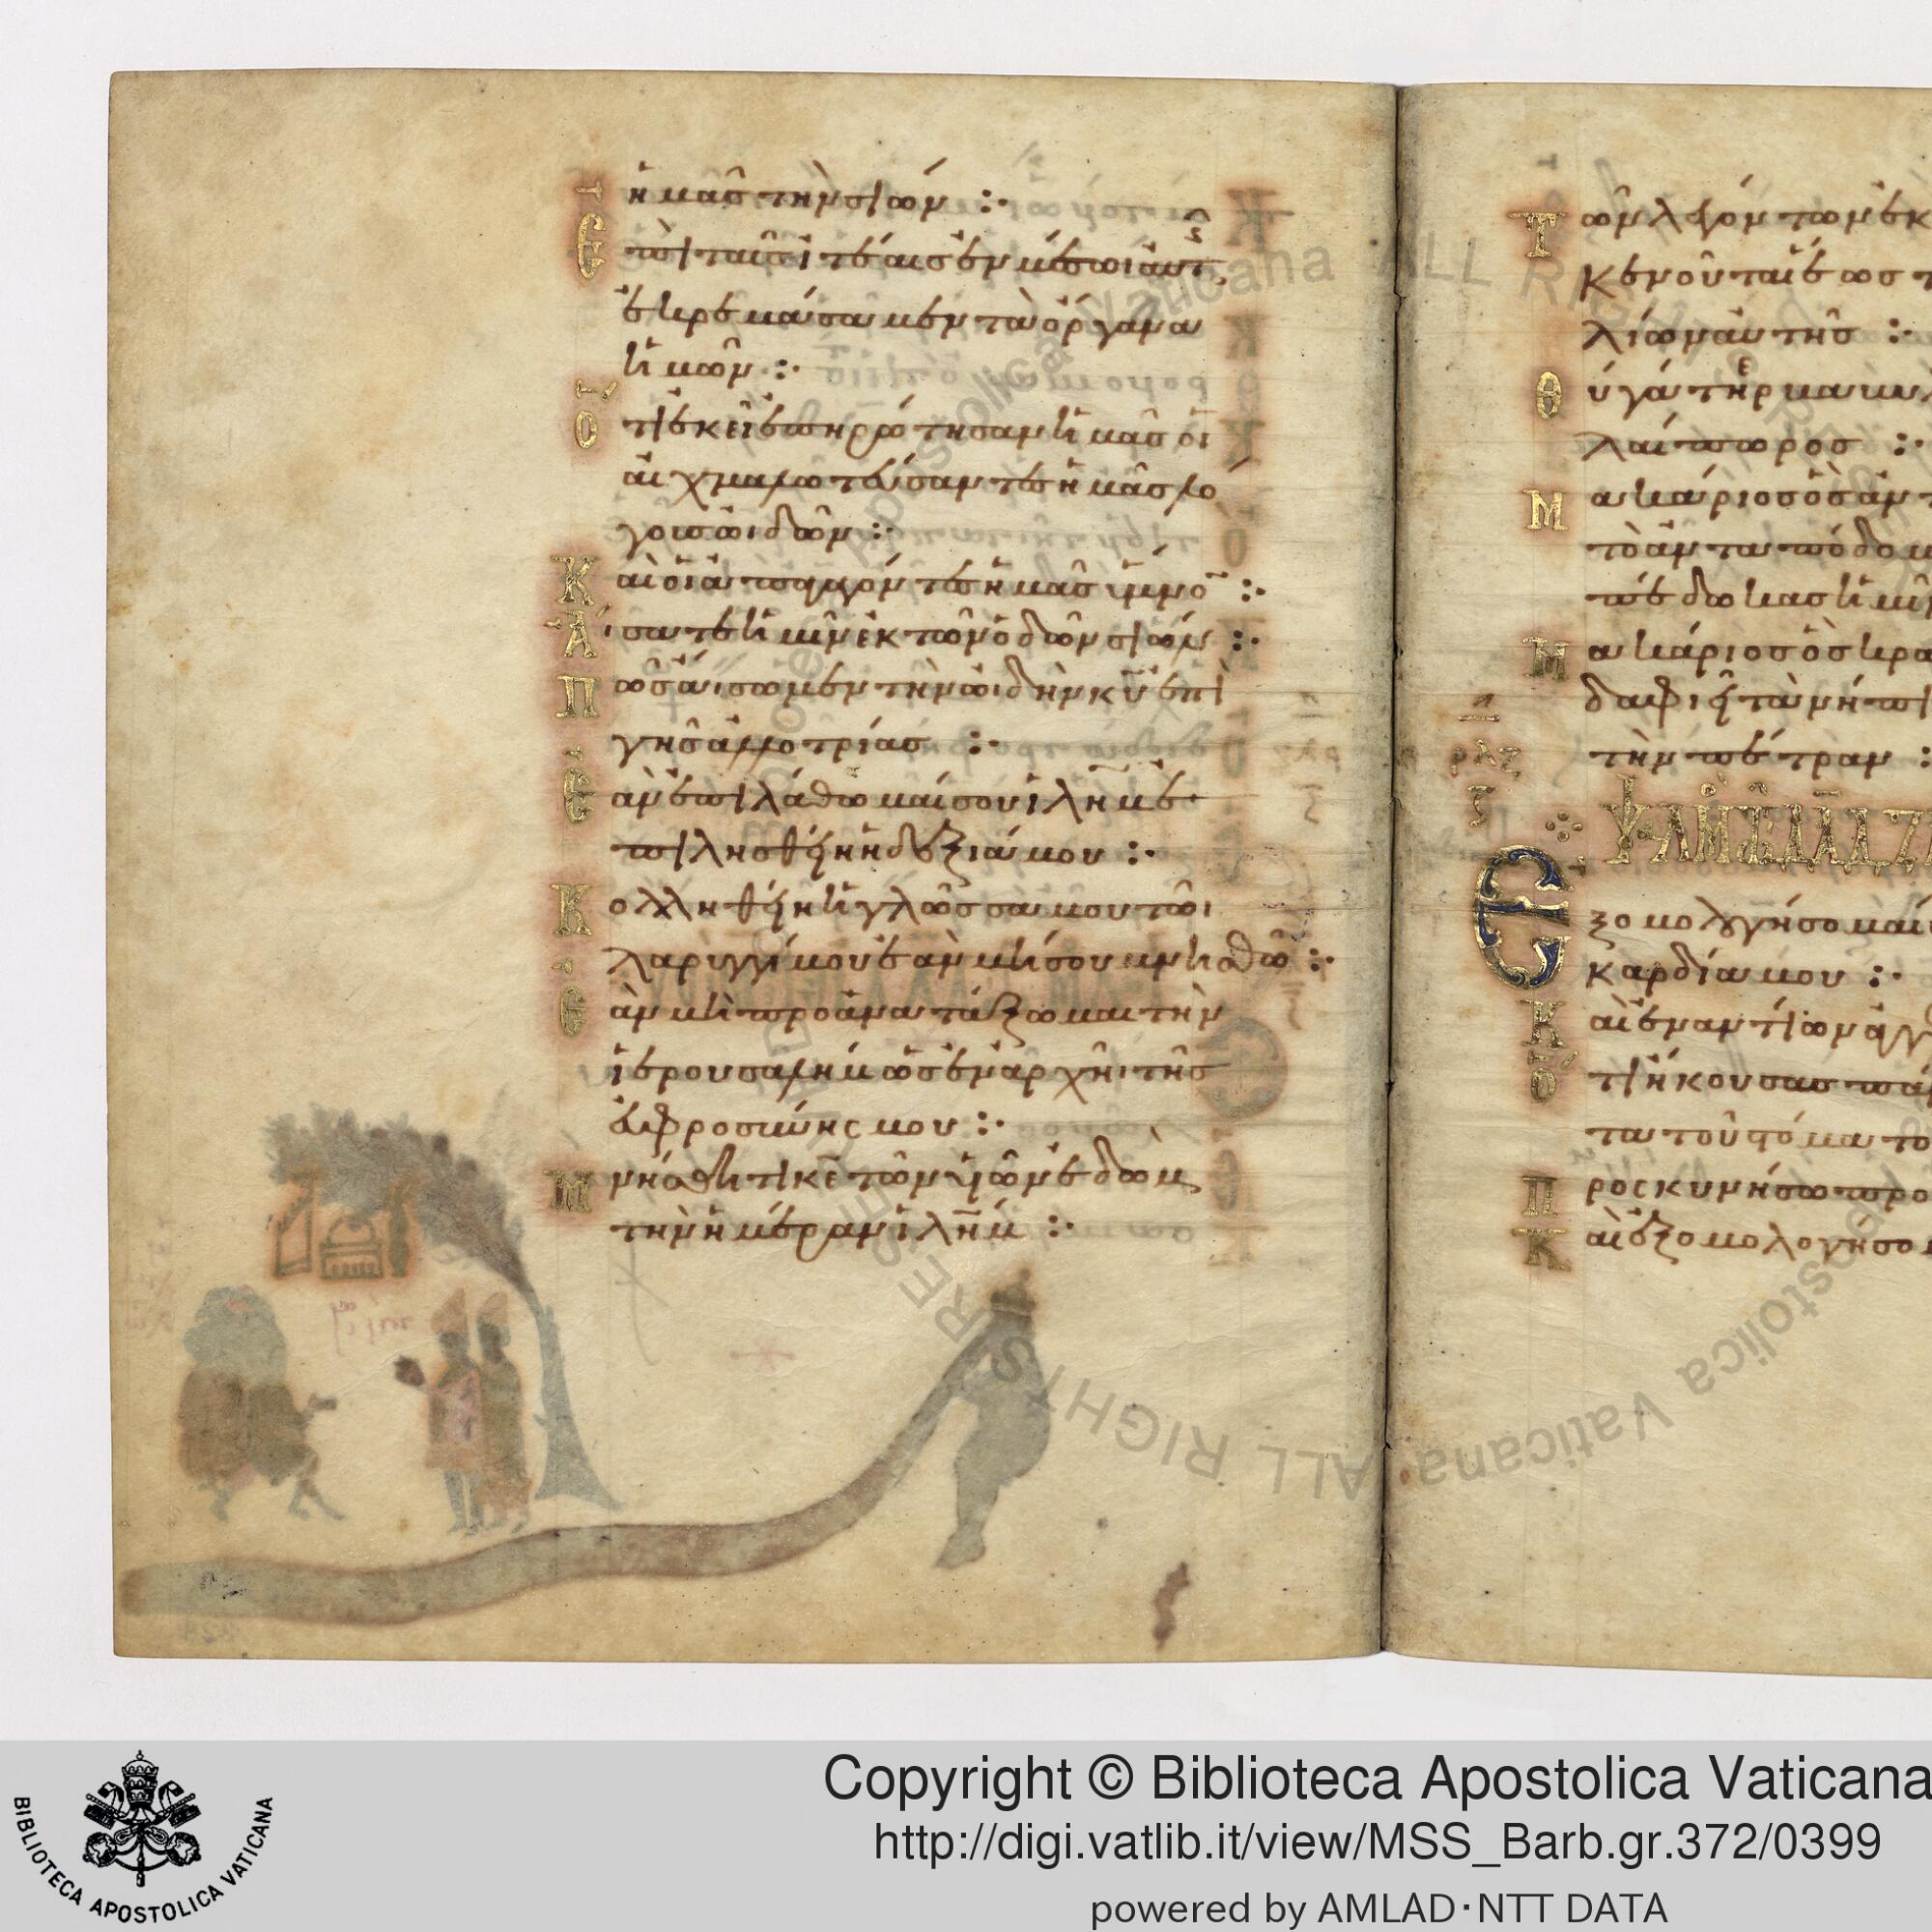 ἡμᾶς τὴν σιών :·
Ἐπὶ ταῖς ἰτέαις ἐν μέσωι αὐτῆς
ἐκρεμάσαμεν τὰ ὄργανα
ἡμῶν :·
Ὅτι ἐκεῖ ἐπηρώτησαν ἡμᾶς οἱ
αἰχμαλωτεύσαντες ἡμᾶς λό
γους ὠιδῶν :·
Καὶ οἱ ἀπαγαγόντες ἡμᾶς ὕμνον :·
Ἄισατε ἡμῖν ἐκ τῶν ὠδῶν σιών :·
Πῶς ἄισωμεν τὴν ὠιδὴν κ̅υ̅ ἐπὶ
γῆς ἀλλοτρίας :·
Ἐὰν ἐπιλάθωμαί σου ι̅λ̅η̅μ̅ ἐ
πιλησθείη ἡ δεξιά μου :·
Κολληθείη ἡ γλῶσσα μου τῶι
λάρυγγί μου ἐὰν μή σου μνησθῶ :·
Ἐὰν μὴ προανατάξωμαι τὴν
ἱερουσαλὴμ ὡς ἐν ἀρχῆι τῆς
εὐφροσύνης μου :·
Μνήσθητι κ̅ε̅ τῶν υἱῶν ἐδὼμ
τὴν ἡμέραν ι̅λ̅η̅μ̅ :·
Τῶν λεγόντων ἐκ
κενοῦται ἕως τ
λίων αὐτῆς :·
Θύγατερ
λαίπωρος :·
Μακάριος ὃς ἀντ
τὸ ἀνταπόδομ
πέδωκας ἡμῖ
Μακάριος ὃς κρα
δαφιεῖ τὰ νήπι
τὴν πέτραν :·
ρλζ
Ἐξομολογήσομαί
καρδία μου :·
Καὶ ἐναντίον ἀγγ
Ὅτι ἤκουσας πά
τα τοῦ στόματο
Προσκυνήσω προ
Καὶ ἐξομολογήσο
Copyright © Biblioteca Apostolica Vaticana
http://digi.vatlib.it/view/MSS_Barb.gr.372/0399
powered by AMLAD·NTT DATA
BIBLIOTECA APOSTOLICA VATICANA